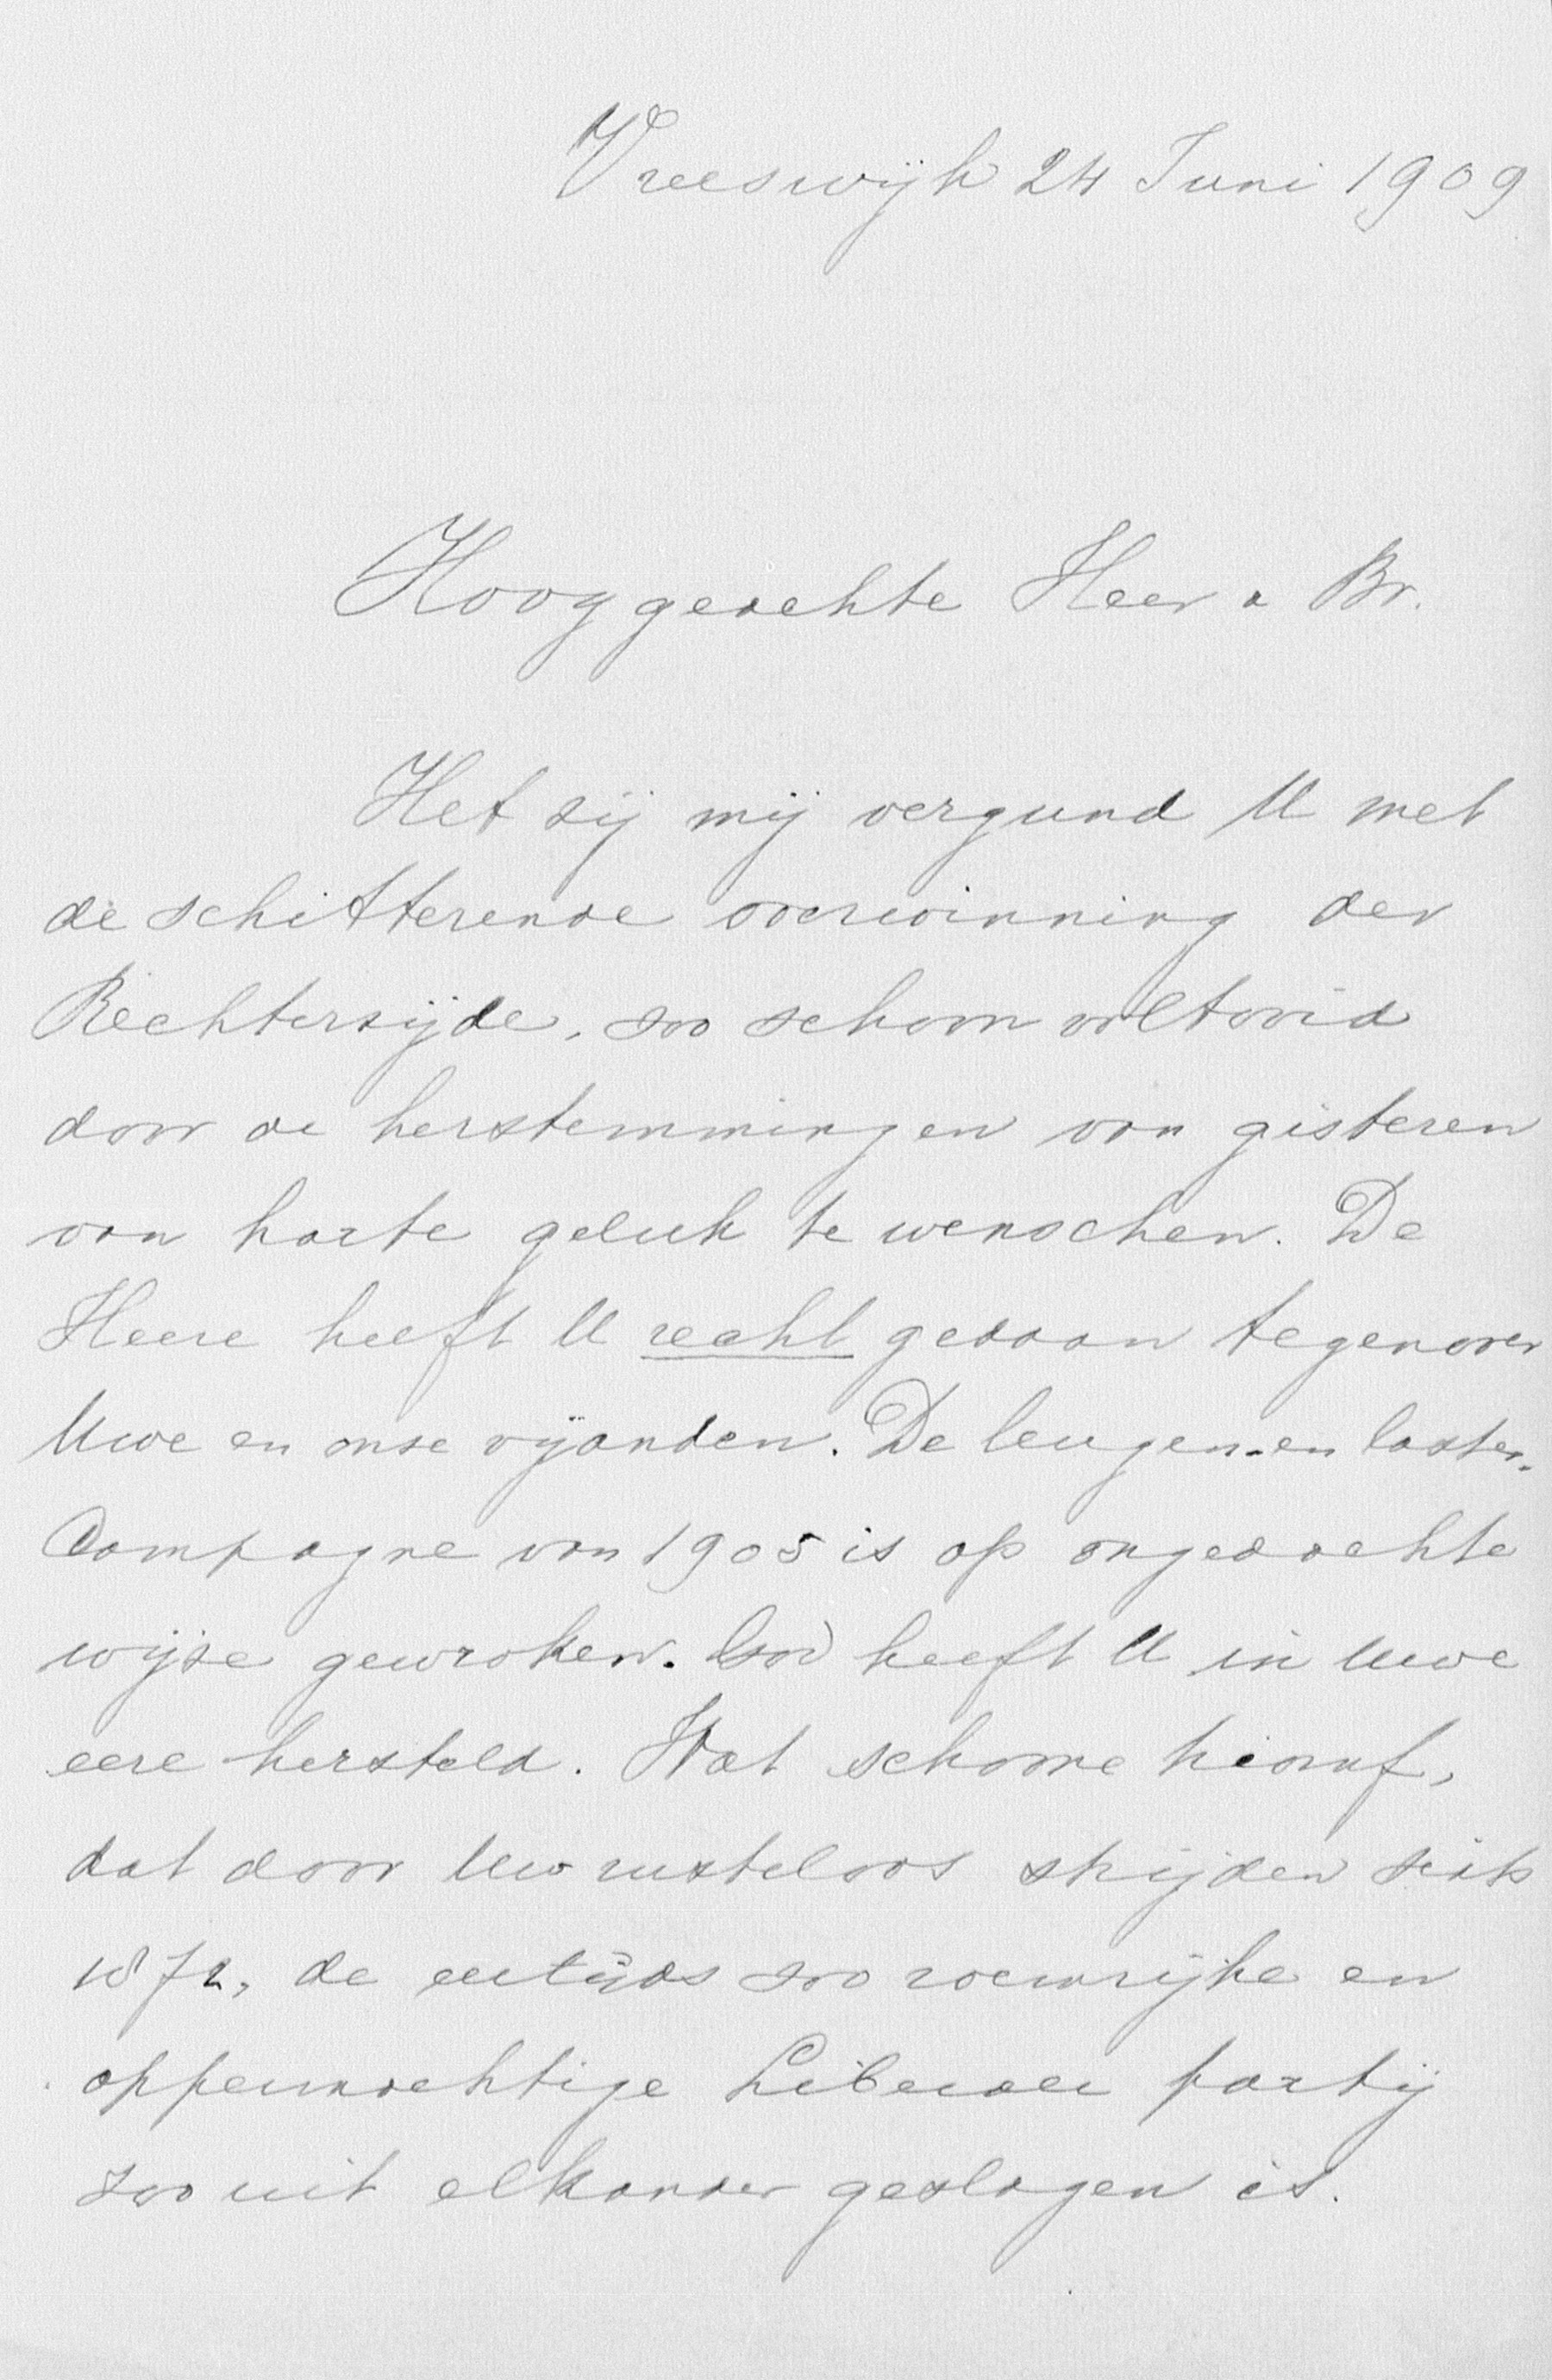 Vreeswijk 24 Juni 1909
Hooggeachte Heer & Br.
Het zij mij vergund U met
de schitterende overwinning der
Rechterzijde, zoo schoon voltooid
door de herstemmingen van gisteren
van harte geluk te wenschen. De
Heere heeft U recht gedaan tegenover
Uwe en onze vijanden. De leugen-en laster-
Campagne van 1905 is op ongedachte
wijze gewroken. God heeft U in Uwe
eere hersteld. Wat schoone triomf,
dat door Uw rusteloos strijden sints
1872, de eertijds zoo roemrijke en
oppermachtige Liberale partij
zoo uit elkander geslagen is.